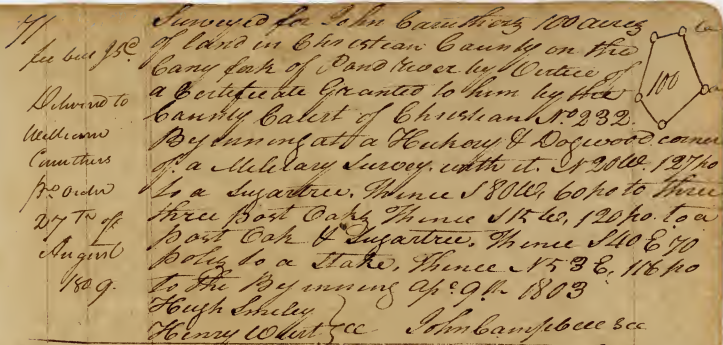 71
fee bill J S C.
Delivered to
William
Caruthers
pr. Order
27th of
August
1809.
Surveyed for John Caruthers 100 acres
of land in Christian County on the
Cany fork of Pond river by Virtue of
a Certificate Granted to him by the
County Court of Christian No 232.
Beginning at a Hickory & Dogwood corner
of a Military Survey. with it. N 20 W. 127 po
to a Sugartree, Thence S 80 W, 60 po to three
three Post Oaks Thence S 15 W, 120 po. to a
Post Oak & Sugartree, Thence S 40 E 70
poles to a Stake, Thence N 53 E, 116 po
to the Beginning Ap. 9th 1803
Hugh Smiley
Henry Wert } CC John Campbell
100